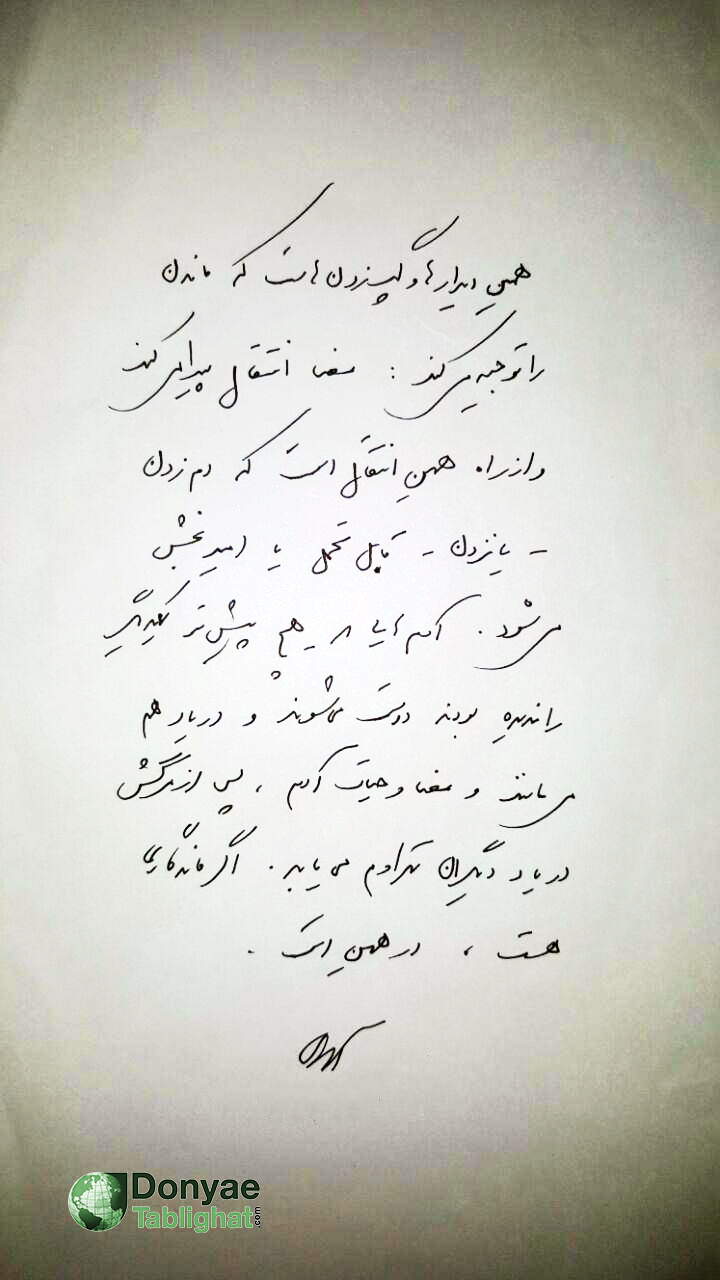 همین دیدارها و گپ‌زدن‌هاست که ماندن
را توجیه می‌کند : معنا انتقال پیدا می‌کند
و از راه همین انتقال است که دم زدن
- یا نزدن - قابل تحمل یا امیدبخش
می‌شود . آدم‌هایی که هیچ پیش‌تر یکدیگر
را ندیده بودند دوست می‌شوند و در یاد هم
می‌مانند و معنا و حیات آدم ، پس از مرگش
در یاد دیگران تداوم می‌یابد . اگر ماندگاری
هست ، در همین است .
Donyae
Tablighat.com